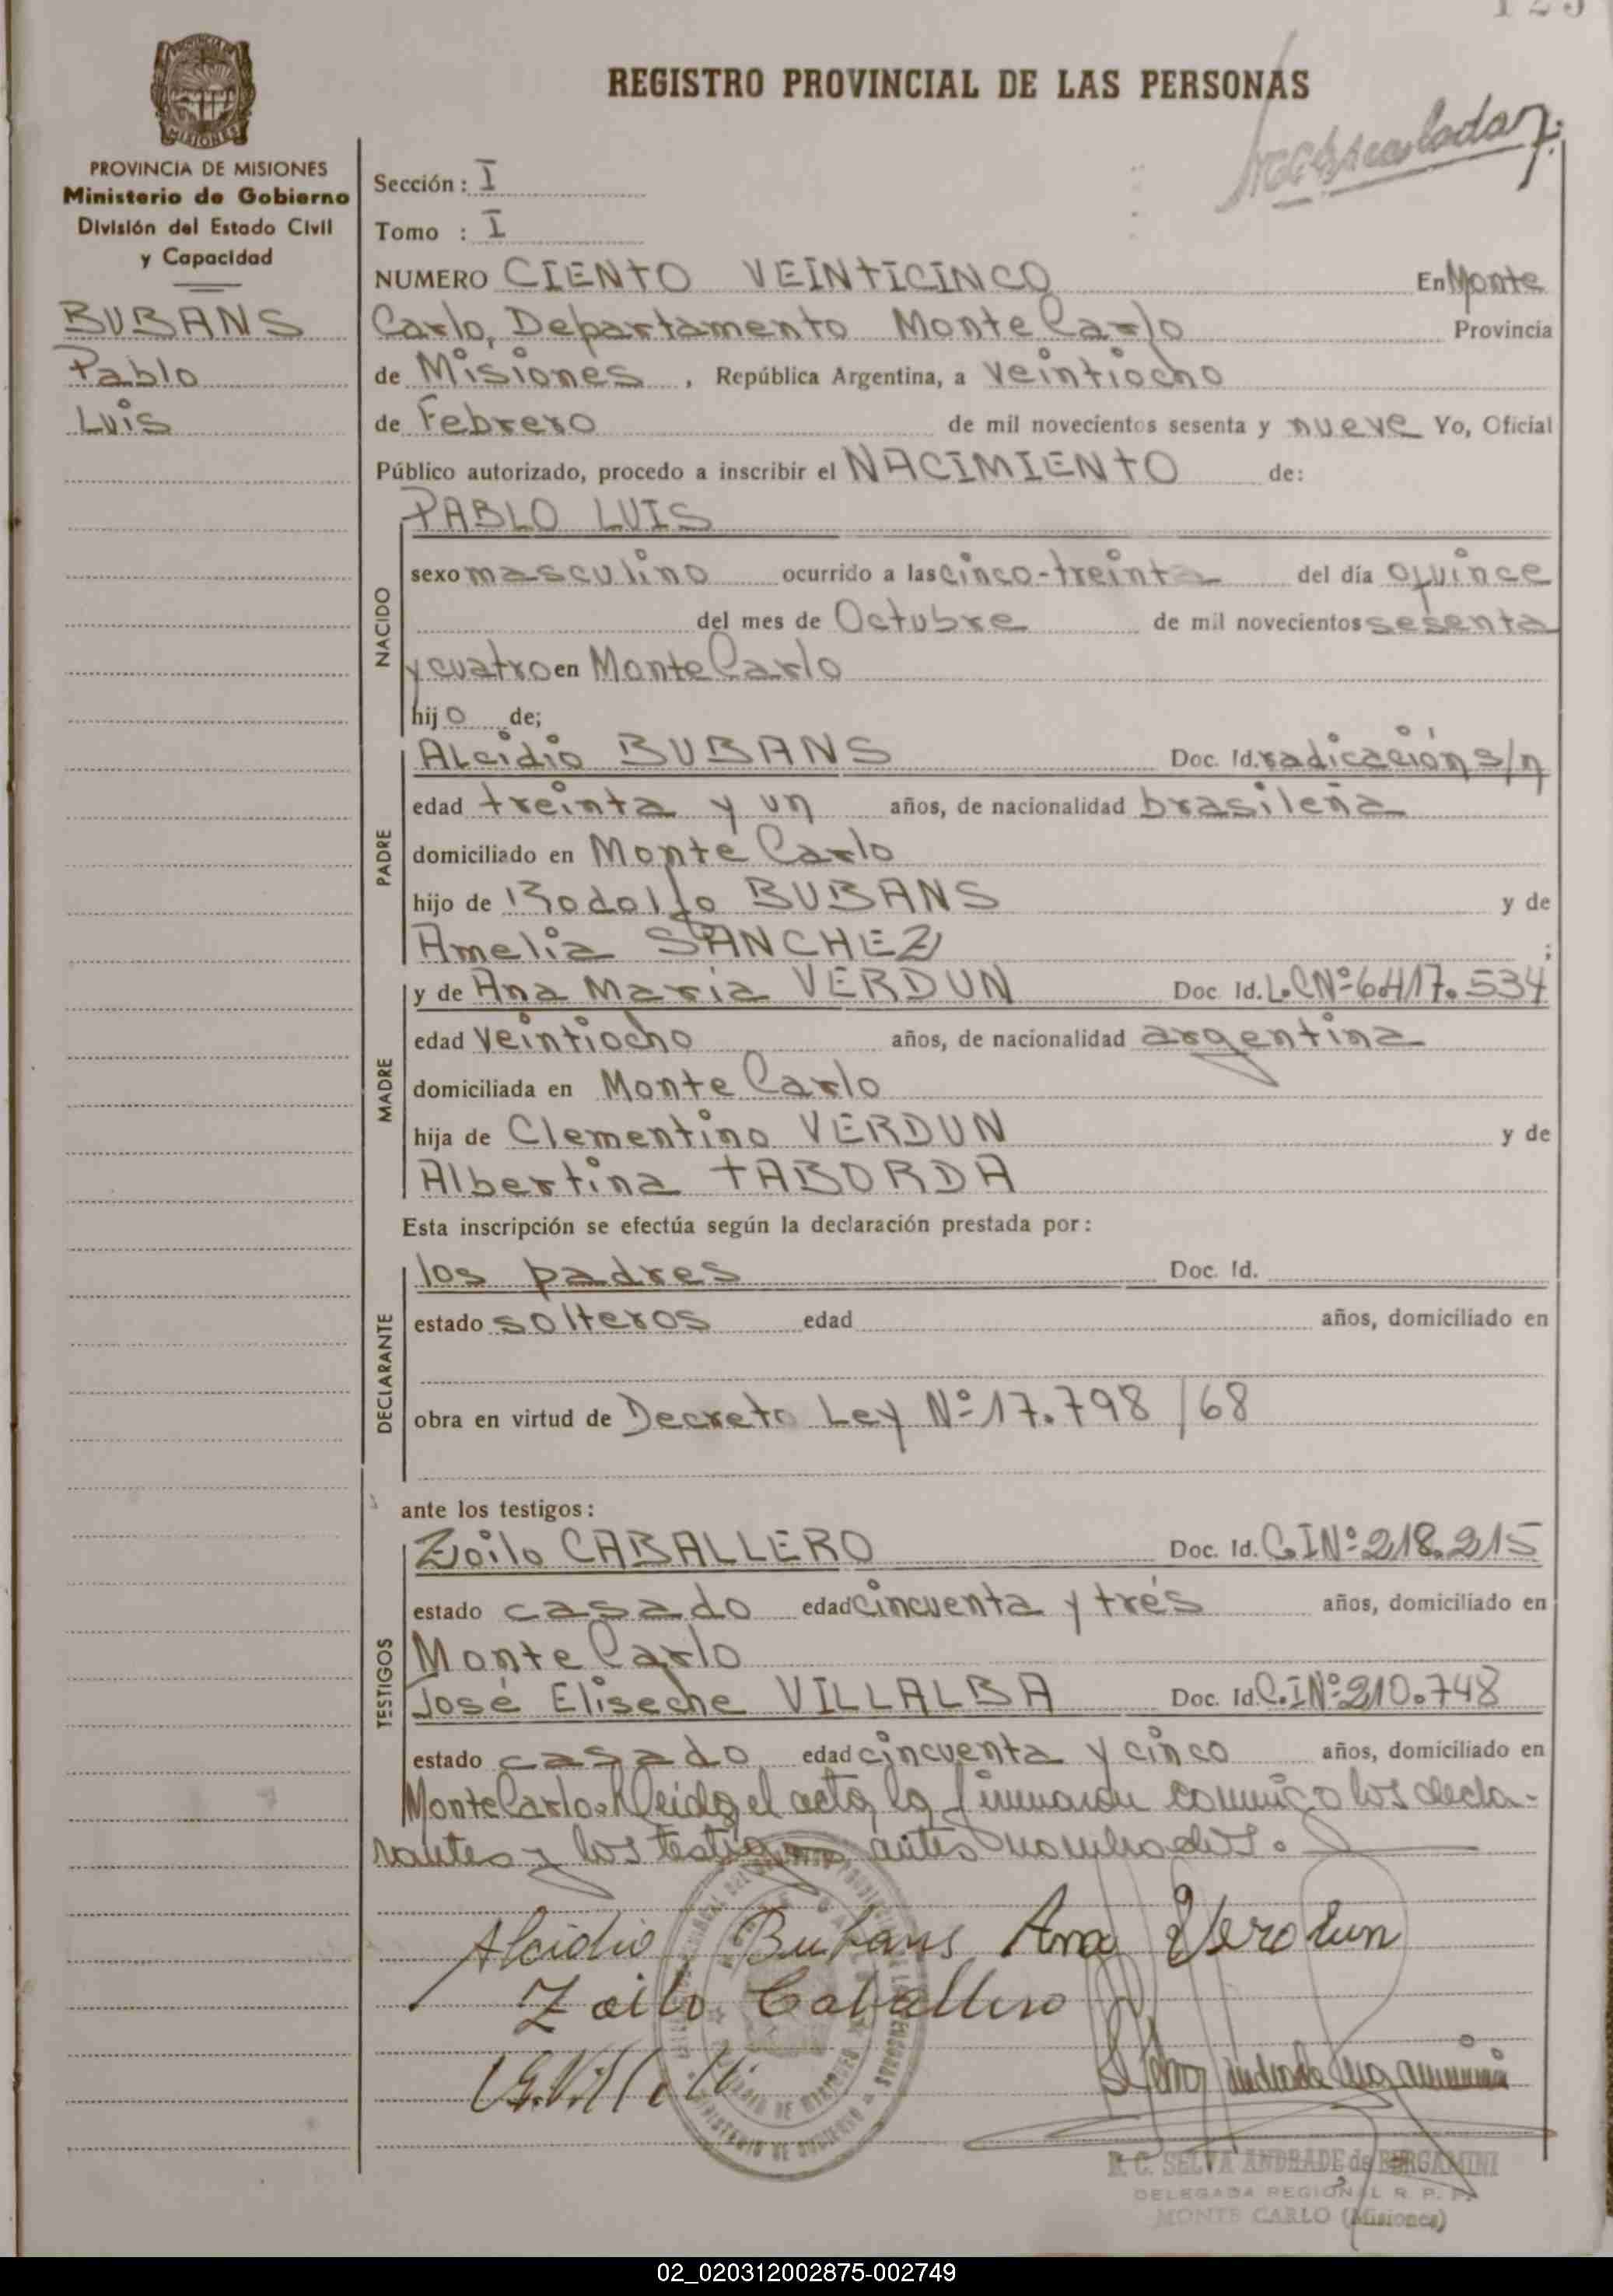 125
REGISTRO PROVINCIAL DE LAS PERSONAS
MISIONES
PROVINCIA DE MISIONES
Ministerio de Gobierno
División del Estado Civil
y Capacidad
BUBANS
Pablo
Luis
Sección: I
Tomo : I
NUMERO CIENTO VEINTICINCO En Monte
Carlo, Departamento Monte Carlo Provincia
de Misiones, República Argentina, a veintiocho
de Febrero de mil novecientos sesenta y nueve Yo, Oficial
Público autorizado, procedo a inscribir el NACIMIENTO de:
NACIDO
PABLO LUIS
sexo masculino ocurrido a las cinco-treinta del día quince
del mes de Octubre de mil novecientos sesenta
y cuatro en Monte Carlo
hijo de;
PADRE
Alcidio BUBANS Doc. Id. radicación s/n
edad treinta y un años, de nacionalidad brasileña
domiciliado en Monte Carlo
hijo de Rodolfo BUBANS y de
Amelia SANCHEZ ;
MADRE
y de Ana María VERDUN Doc Id. L.C Nº 6.417.534
edad veintiocho años, de nacionalidad argentina
domiciliada en Monte Carlo
hija de Clementino VERDUN y de
Albertina TABORDA
Esta inscripción se efectúa según la declaración prestada por:
DECLARANTE
los padres Doc. Id.
estado solteros edad años, domiciliado en
obra en virtud de Decreto Ley Nº 17.798 /68
ante los testigos:
TESTIGOS
Zoilo CABALLERO Doc. Id. C.I Nº 218.215
estado casado edad cincuenta y trés años, domiciliado en
Monte Carlo
José Eliseche VILLALBA Doc. Id. C.I Nº 210.748
estado casado edad cincuenta y cinco años, domiciliado en
Monte Carlo. Leida el acta, la firmaron conmigo los decla-
rantes y los testigos antes nombrados.
Alcidio Bubans Ana Verdun
Zoilo Caballero
R. C. SELVA ANDRADE de BERGAMINI
DELEGADA REGIONAL R. P. P.
MONTE CARLO (Misiones)
02_020312002875-002749